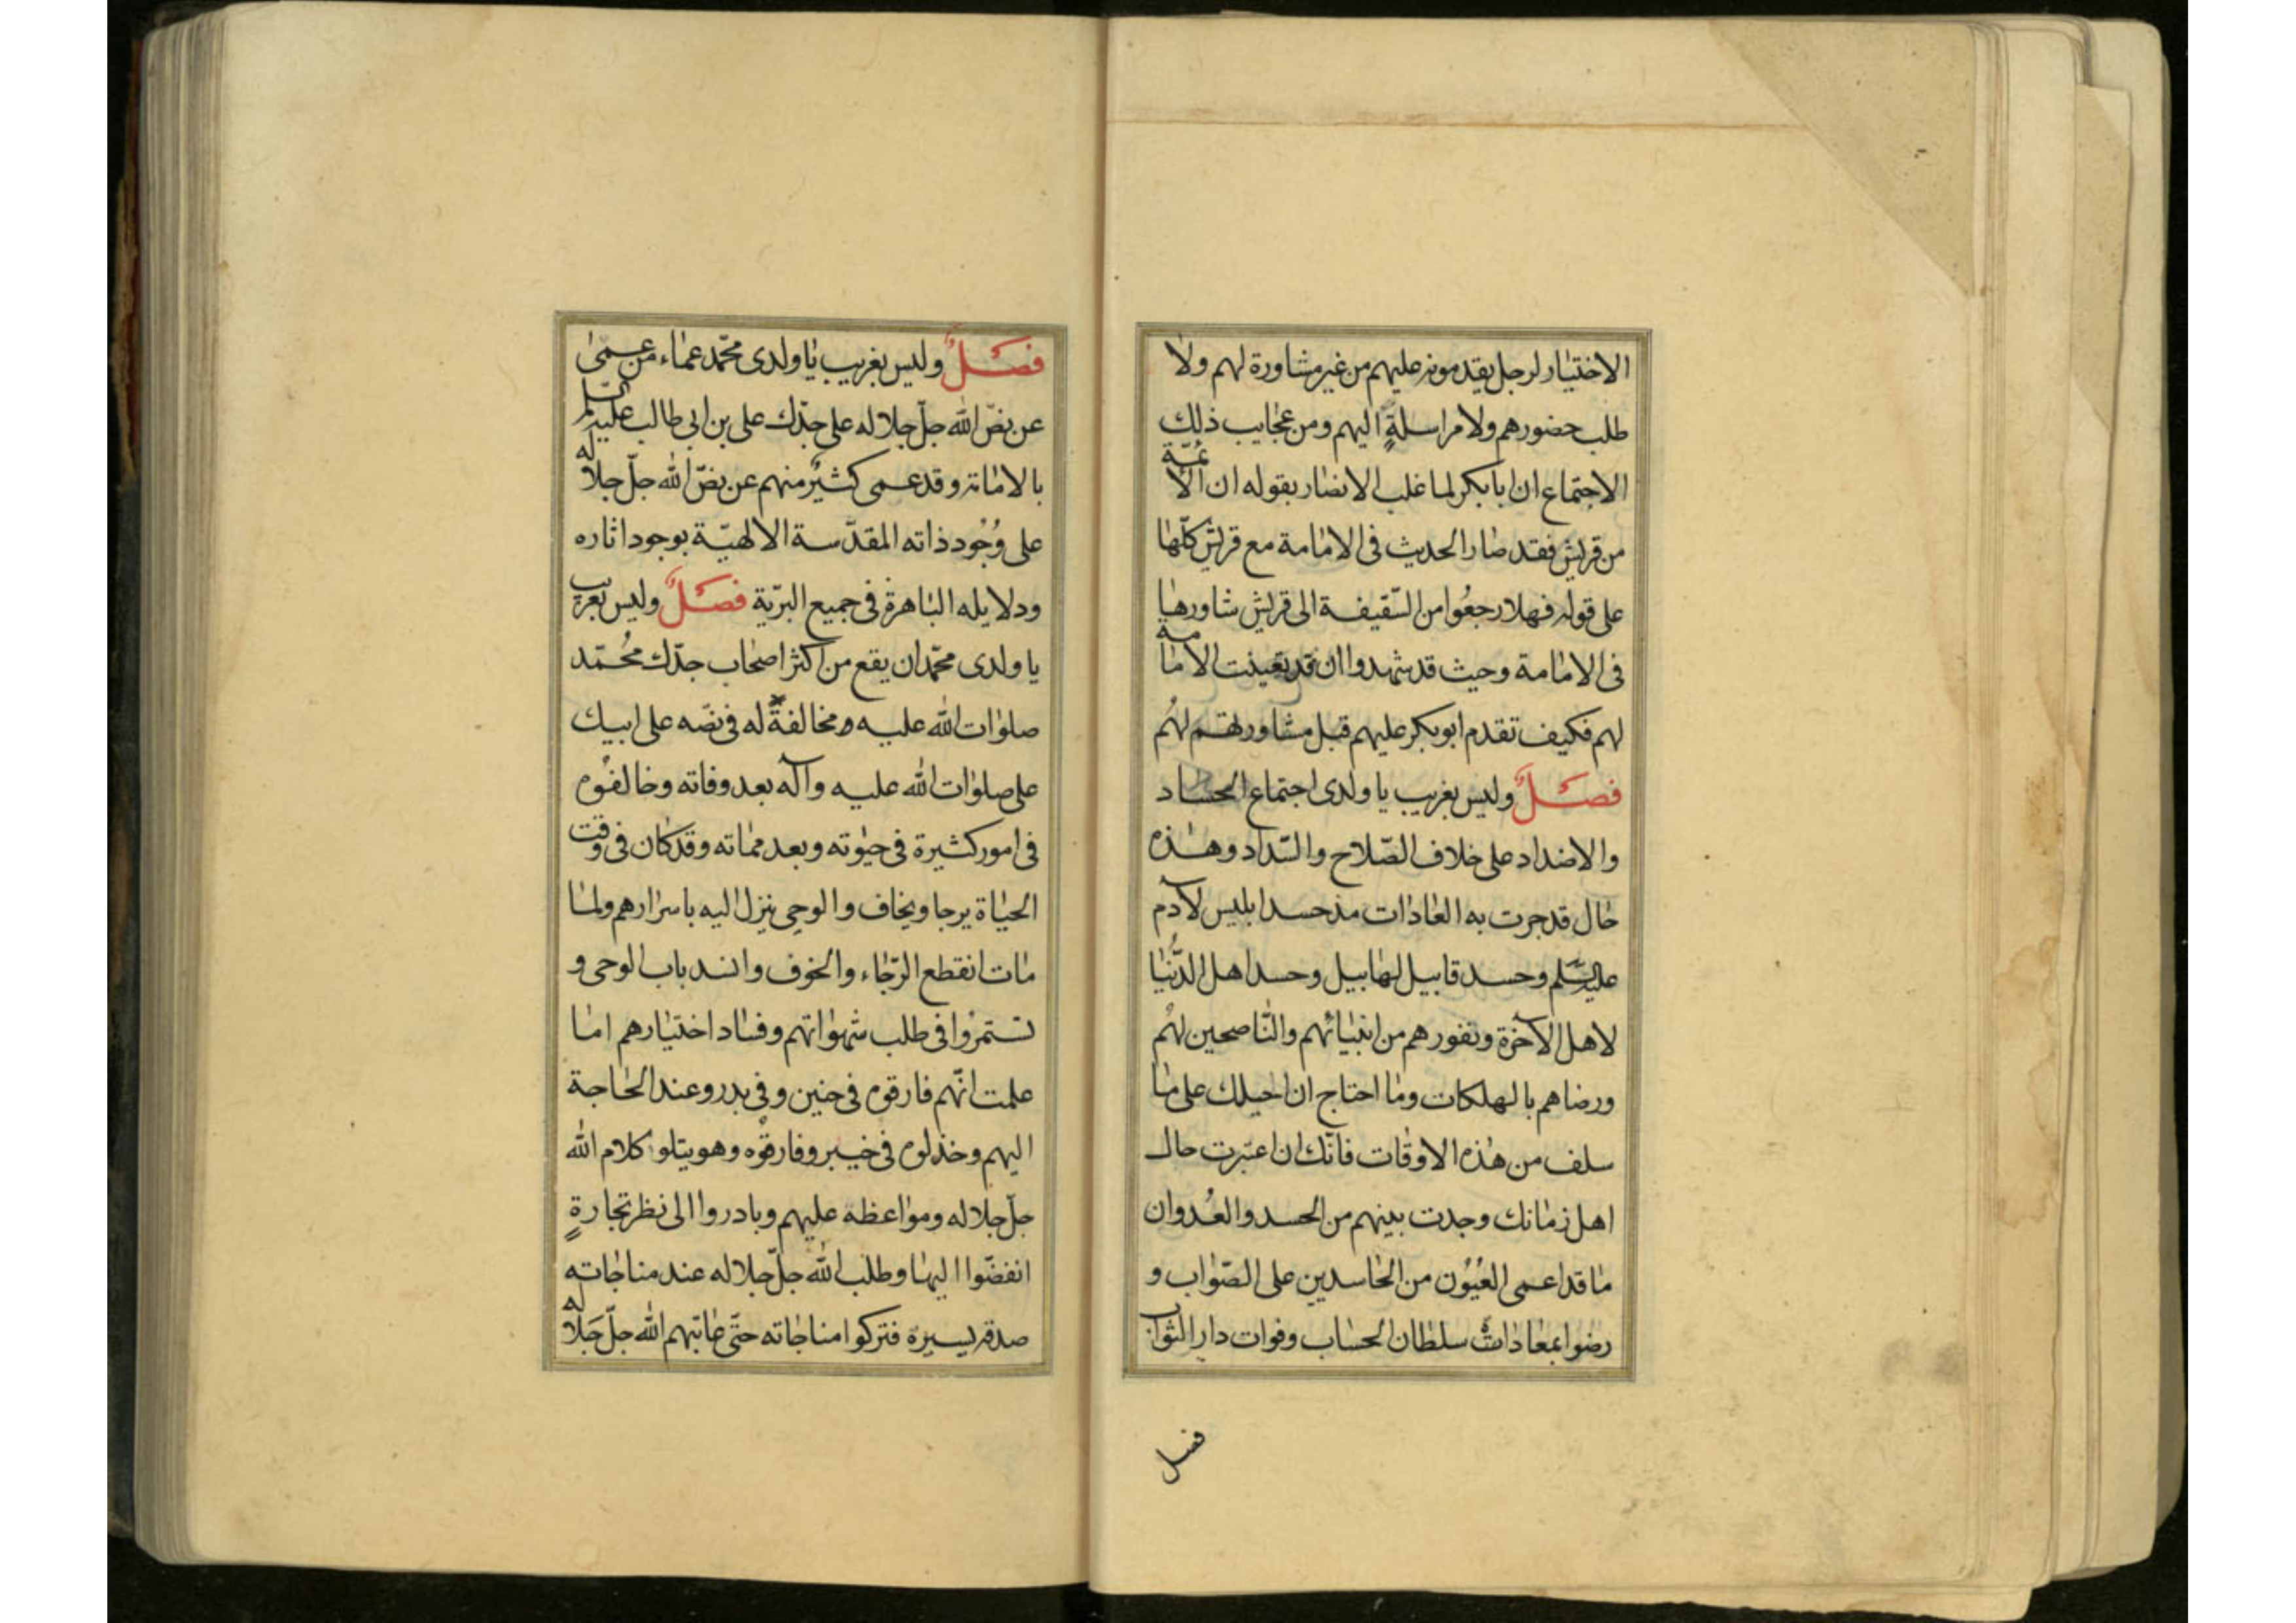 الاختيار لرجل يقدمونه عليهم من غير مشاورة لهم ولا
طلب حضورهم ولا مراسلةٍ اليهم ومن عجايب ذلك
الاجتماع ان بابكر لما غلب الانصار بقوله ان الائمّة
من قريش فقد صار الحديث فى الامامة مع قريش كلّها
على قوله فهلا رجعُوا من السّقيفة الى قريش شاورها
فى الامامة وحيث قد شهدوا ان قد تعينت الامامة
لهم فكيف تقدم ابوبكر عليهم قبل مشاورتهم لهُم
فصَلٌ وليس بغريب يا ولدى اجتماع الحساد
والاضداد على خلاف الصّلاح والسّداد وهذه
حال قد جرت به العادات مذ حسد ابليس لآدم
عليه السّلم وحسد قابيل لهابيل وحسد اهل الدُّنيا
لاهل الآخرة ونفورهم من انبيائهم والنّاصحين لهُم
ورضاهم بالهلكات وما احتاج ان احيلك على ما
سلف من هذه الاوقات فانّك ان اعتبرت حال
اهل زمانك وجدت بينهم من الحسد والعُدوان
ما قد اعمى العُيُون من الحاسدين على الصّواب و
رضوا بمعادات سلطان الحساب وفوات دار الثواب
فصل
فصَلٌ وليس بغريب يا ولدى محمّد عماء من عمىٰ
عن نصّ الله جلّ جلاله على جدّك على بن ابى طالب عليه السّلم
بالامامة وقد عمى كثيرٌ منهم عن نصّ الله جلّ جلاله
على وُجُود ذاته المقدّسة الالهيّة بوجود اثاره
ودلايله الباهرة فى جميع البرّية فصَلٌ وليس بغريب
يا ولدى محمّد ان يقع من اكثر اصحاب جدّك مُحمّد
صلوات الله عليه ومخالفةً له فى نصّه على ابيك
على صلوات الله عليه وآله بعد وفاته وخالفوُه
فى امور كثيرة فى حيوته وبعد مماته وقد كان فى وقت
الحياة يرجا ويخاف والوحى ينزل اليه باسرارهم ولما
مات انقطع الرّجاء والخوف وانسد باب الوحى و
تستمرّوا فى طلب شهواتهم وفساد اختيارهم اما
علمت انّهم فارقوه فى حنين وفى بدر وعند الحاجة
اليهم وخذلوه فى خيبر وفارقُوه وهو يتلو كلام الله
جلّ جلاله ومواعظه عليهم وبادروا الى نظر تجارةٍ
انفضّوا اليها وطلب الله جلّ جلاله عند مناجاته
صدقه يسيرة فتركوا مناجاته حتّى عاتبهم الله جلّ جَلاله